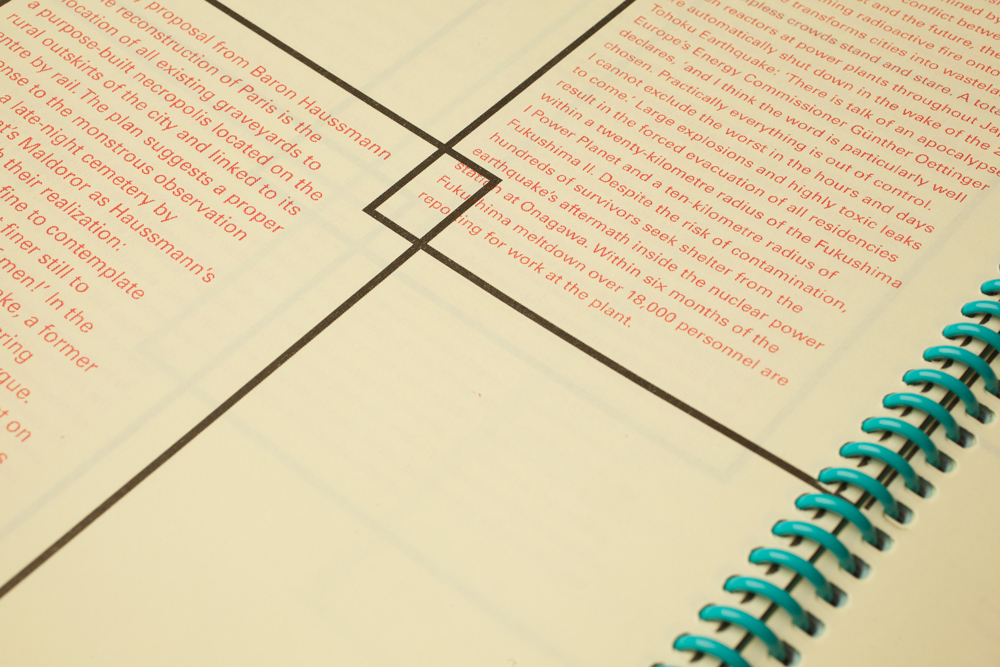 proposal from Baron Haussmann
reconstruction of Paris is the
location of all existing graveyards to
a purpose-built necropolis located on the
rural outskirts of the city and linked to its
ntre by rail. The plan suggests a proper
ense to the monstrous observation
a late-night cemetery by
at's Maldoror as Haussmann's
their realization:
fine to contemplate
finer still to
men!' In the
ke, a former
ring
gue.
t on
conflict between
and the future, the
ning radioactive fire onto
transforms cities into wastelan
pless crowds stand and stare. A tot
reactors at power plants throughout Ja
automatically shut down in the wake of the
Tohoku Earthquake; 'There is talk of an apocalypse
Europe's Energy Commissioner Günther Oettinger
declares, 'and I think the word is particularly well
chosen. Practically everything is out of control.
I cannot exclude the worst in the hours and days
to come.' Large explosions and highly toxic leaks
result in the forced evacuation of all residencies
within a twenty-kilometre radius of the Fukushima
I Power Planet and a ten-kilometre radius of
Fukushima II. Despite the risk of contamination,
hundreds of survivors seek shelter from the
earthquake's aftermath inside the nuclear power
station at Onagawa. Within six months of the
Fukushima meltdown over 18,000 personnel are
reporting for work at the plant.